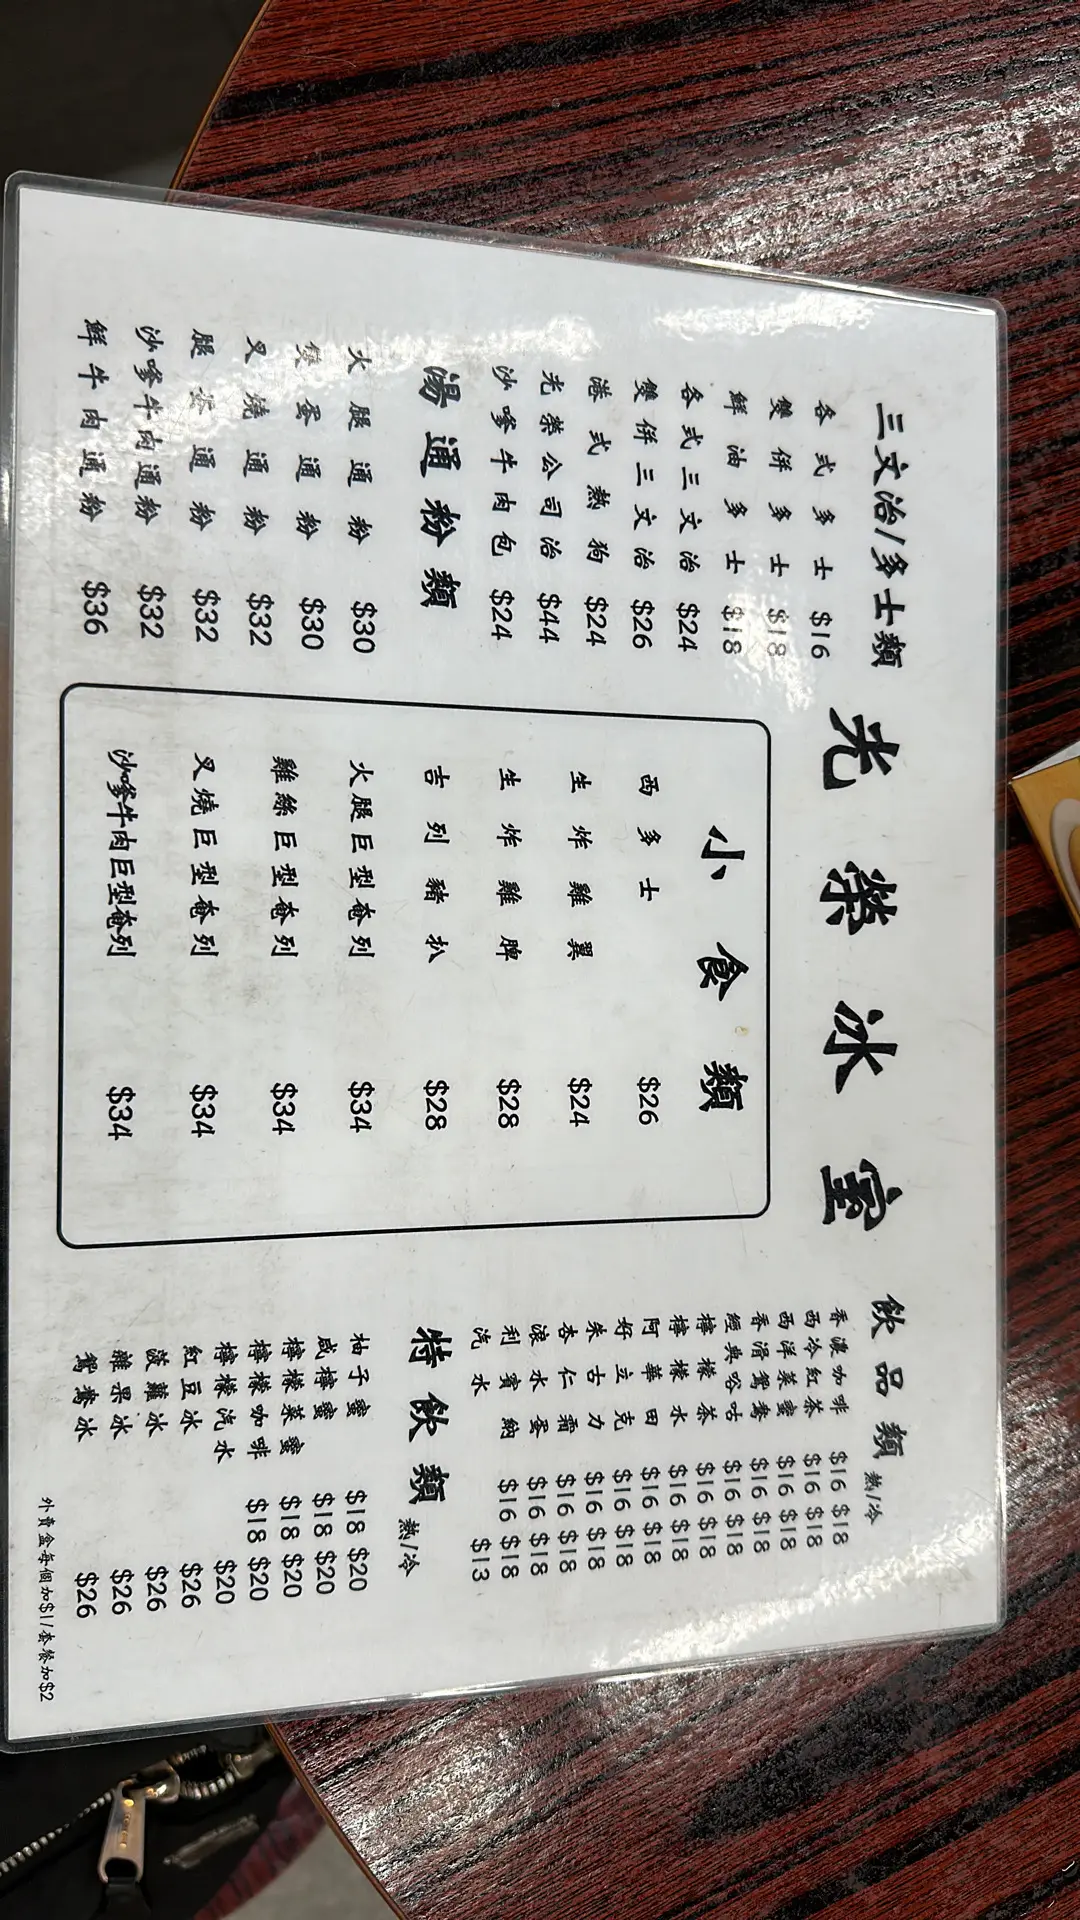 光榮冰室
三文治/多士類
各式多士 $16
雙併多士 $18
鮮油多士 $18
各式三文治 $24
雙併三文治 $26
港式熱狗 $24
光榮公司治 $44
沙嗲牛肉包 $24
湯通粉類
火腿通粉 $30
雙蛋通粉 $30
叉燒通粉 $32
腿蛋通粉 $32
沙嗲牛肉通粉 $32
鮮牛肉通粉 $36
小食類
西多士 $26
生炸雞翼 $24
生炸雞脾 $28
吉列豬扒 $28
火腿巨型奄列 $34
雞絲巨型奄列 $34
叉燒巨型奄列 $34
沙嗲牛肉巨型奄列 $34
飲品類 熱/冷
香濃咖啡 $16 $18
西冷紅茶 $16 $18
西洋菜蜜 $16 $18
香滑鴛鴦 $16 $18
經典唂咕 $16 $18
檸檬茶 $16 $18
檸檬水 $16 $18
阿華田 $16 $18
好立克 $16 $18
朱古力 $16 $18
杏仁霜 $16 $18
滾水蛋 $16 $18
利賓納 $16 $18
汽水 $13
特飲類 熱/冷
柚子蜜 $18 $20
咸檸蜜 $18 $20
檸檬菜蜜 $18 $20
檸檬咖啡 $18 $20
檸檬汽水 $20
紅豆冰 $26
菠蘿冰 $26
雜果冰 $26
鴛鴦冰 $26
外賣盒每個加$1/套餐加$2